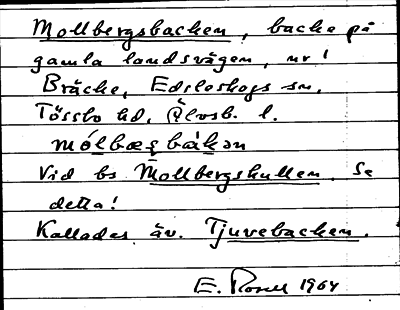 Mollbergsbacken, backe på
gamla landsvägen, nr 1
Bräcke, Edsleskogs sn,
Tössbo hd, Älvsb. l.
mólbæsbàkən
Vid bs Mollbergskullen. Se
detta!
Kallades äv. Tjuvebacken.
E. Rosell 1964